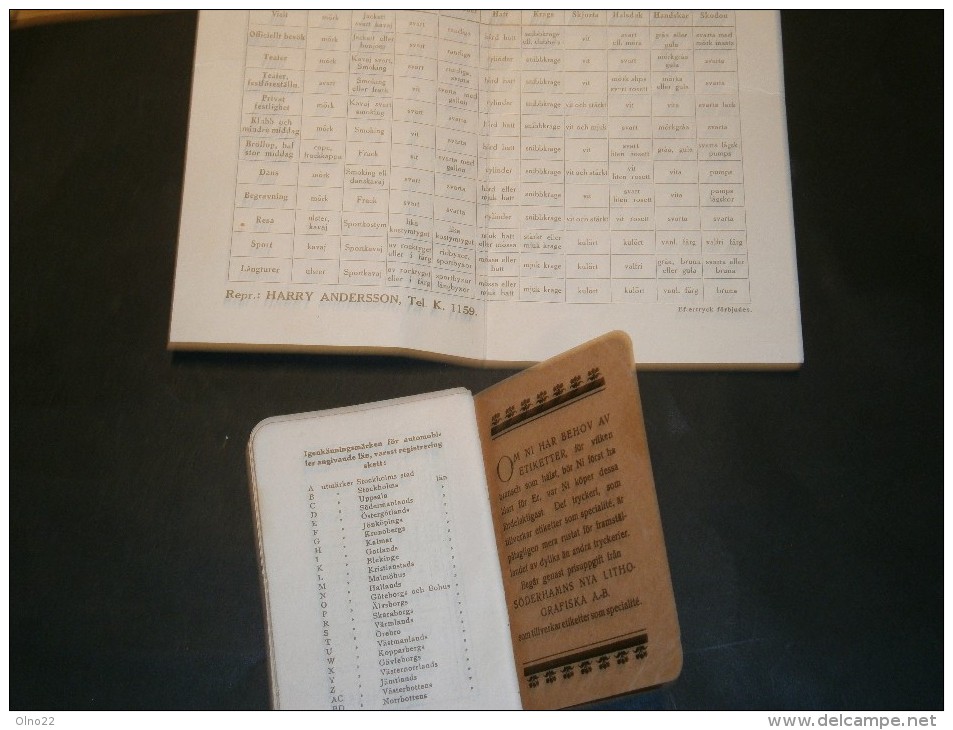 Visit mörk Jackett svart kavaj svart randiga Hatt Krage Skjorta Halsduk Handskar Skodon
Officiellt besök mörk Jackett eller Smoking svart randiga hård hatt snibbkrage ell. dubbel-s vit svart ell. mörk grås eller gula svarta med mörk insats
Teater mörk Kavaj svart, Smoking svart randiga, svarta cylinder snibbkrage vit svart mörkgrås gula svarta
Teater, festföreställn mörk Smoking eller Frack vit svarta med galon hård hatt snibbkrage vit mörk slips svart rosett mörka eller gula svarta
Privat festlighet mörk Kavaj svart smoking svart svarta cylinder snibbkrage vit och stärkt vit vita svarta lack
Klubb och mindre middag mörk Smoking vit svarta hård hatt snibbkrage vit och mjuk svart mörkgrås svarta
Bröllop, bal stor middag cape, frackkappa Frack vit svarta med galon hård hatt snibbkrage vit svart liten rosett grån, gula svarta lågsk. pumps
Dans mörk Smoking ell danskavaj svart svarta cylinder snibbkrage vit och stärkt vit liten rosett vita pumps
Begravning mörk Frack svart svarta hård eller mjuk hatt snibbkrage vit svart liten rosett vita pumps lågskor
Resa ulster, kavaj Sportkostym lika kostymtyget lika kostymtyget cylinder snibbkrage vit och stärkt vit rosett svarta svarta
Sport kavaj Sportkavaj av rocktyget eller i färg ridbyxor, sportbyxor mjuk hatt eller mössa stärkt eller mjuk krage kulört kulört vanl. färg valfri färg
Långturer ulster Sportkavaj av rocktyget eller i färg sportbyxor långbyxor mössa eller hatt mjuk krage kulört valfri grås, bruna eller gula svarta eller bruna
mössa eller mjuk hatt mjuk krage kulört kulört vanl. färg bruna
Repr.: HARRY ANDERSSON, Tel K. 1159.
Eftertryck förbjudes.
Igenkänningsmärken för automobi-
ler angivande län, varest registrering
skett:
A utmärker Stockholms stad
B " Stockholms län
C " Uppsala "
D " Södermanlands "
E " Östergötlands "
F " Jönköpings "
G " Kronobergs "
H " Kalmar "
I " Gotlands "
K " Blekinge "
L " Kristianstads "
M " Malmöhus "
N " Hallands "
O " Göteborgs och Bohus "
P " Älvsborgs "
R " Skaraborgs "
S " Värmlands "
T " Örebro "
U " Västmanlands "
W " Kopparbergs "
X " Gävleborgs "
Y " Västernorrlands "
Z " Jämtlands "
AC " Västerbottens "
BD " Norrbottens "
OM NI HAR BEHOV AV
ETIKETTER, för vilken
bransch som hälst, bör Ni först ha
klart för Er, var Ni köper dessa
fördelaktigast. Det tryckeri, som
tillverkar etiketter som specialité, är
påtagligen mera rustat för framstäl-
landet av dylika än andra tryckerier.
Begär genast prisuppgift från
SÖDERHAMNS NYA LITHO-
GRAFISKA A.-B.
som tillverkar etiketter som specialité.
Olno22
www.delcampe.net